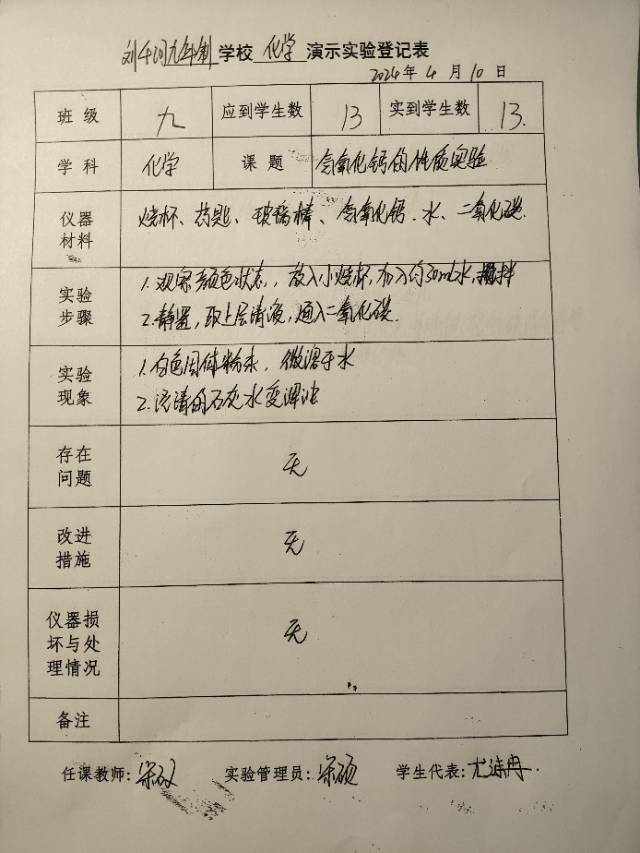 刘千河九年制学校 化学 演示实验登记表
2024年4月10日
班级 九 应到学生数 13 实到学生数 13.
学科 化学 课题 氢氧化钙的性质实验
仪器材料 烧杯、药匙、玻璃棒、氢氧化钙.水、二氧化碳.
实验步骤 1.观察颜色状态,,放入小烧杯,加入约30mL水,搅拌
2.静置,取上层清液,通入二氧化碳.
实验现象 1.白色固体粉末,微溶于水
2.澄清的石灰水变浑浊
存在问题 无
改进措施 无
仪器损坏与处理情况 无
备注
任课教师: 实验管理员: 学生代表: